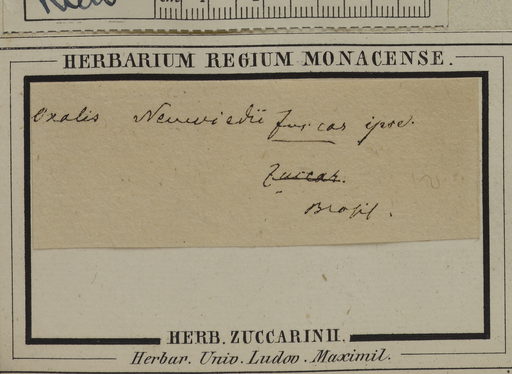 cm 1 2
HERBARIUM REGIUM MONACENSE.
Oxalis Neuwiedii Zuccar ipse.
Zuccar.
Brasil.
HERB. ZUCCARINII.
Herbar. Univ. Ludov. Maximil.